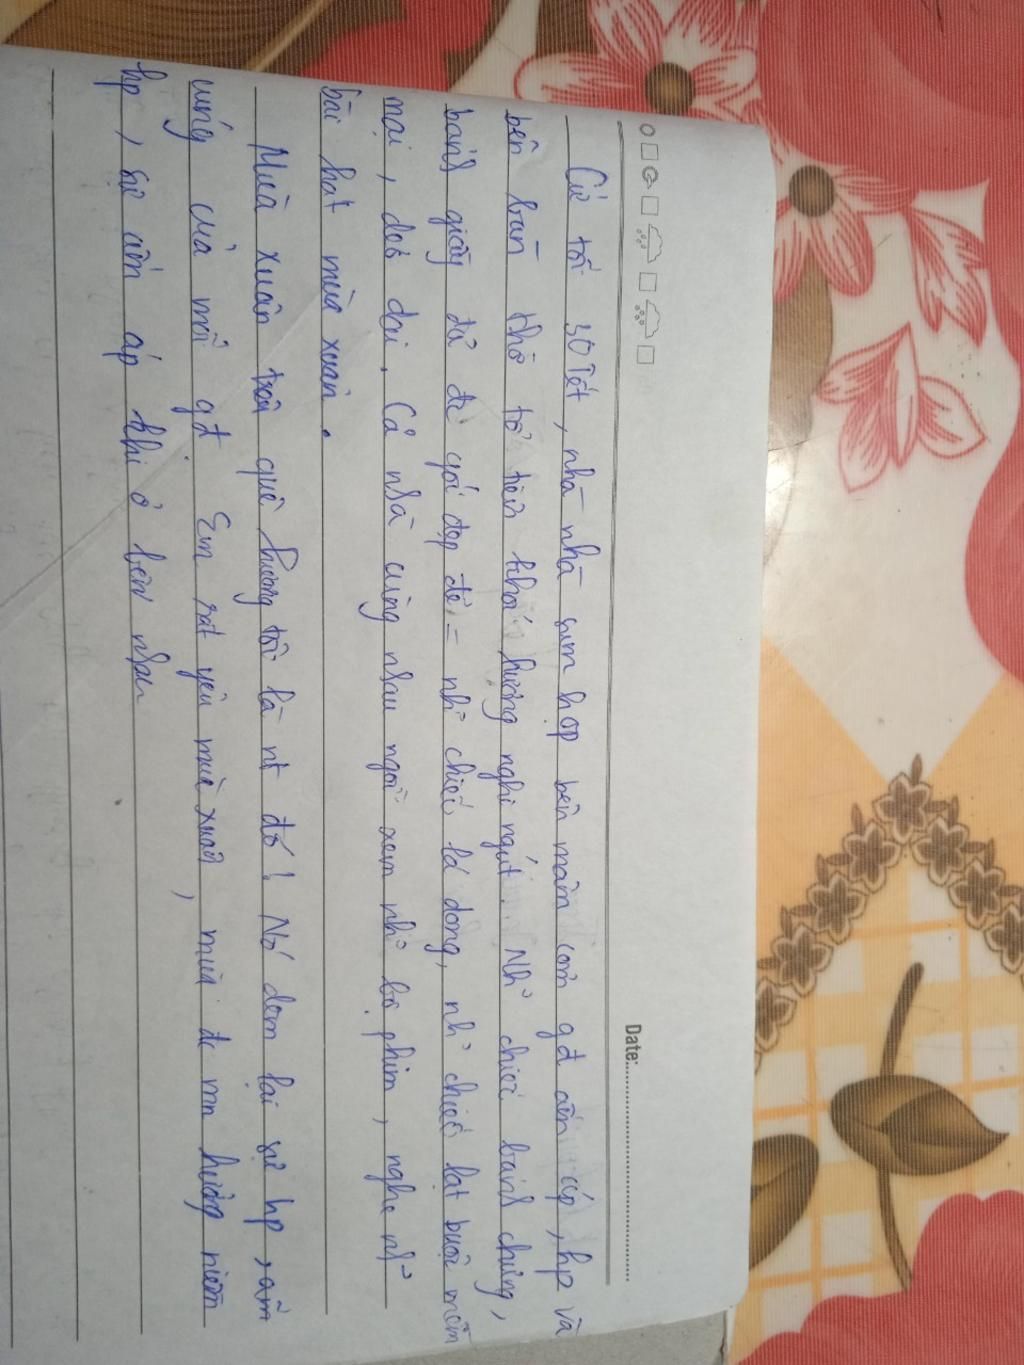 Date:
Cứ tối 30 Tết, nhà nhà sum họp bên mâm cơm gđ ấm cúp, hp và
bên bàn thờ tổ tiên khói hương nghi ngút. Nh~ chiếc bánh chưng,
bánh giầy đã đc gói đẹp đẽ - nh~ chiếc lá dong, nh~ chiếc lạt buộc mềm
mại, dẻo dai. Cả nhà cùng nhau ngồi xem nh~ bộ phim, nghe nh~
bài hát mùa xuân.
Mùa xuân trên quê hương tôi là nt đó! Nó đem lại sự hp, ấm
cúng của mỗi gđ. Em rất yêu mùa xuân, mùa đc mn hưởng niềm
hp, sự ấm áp khi ở bên nhau